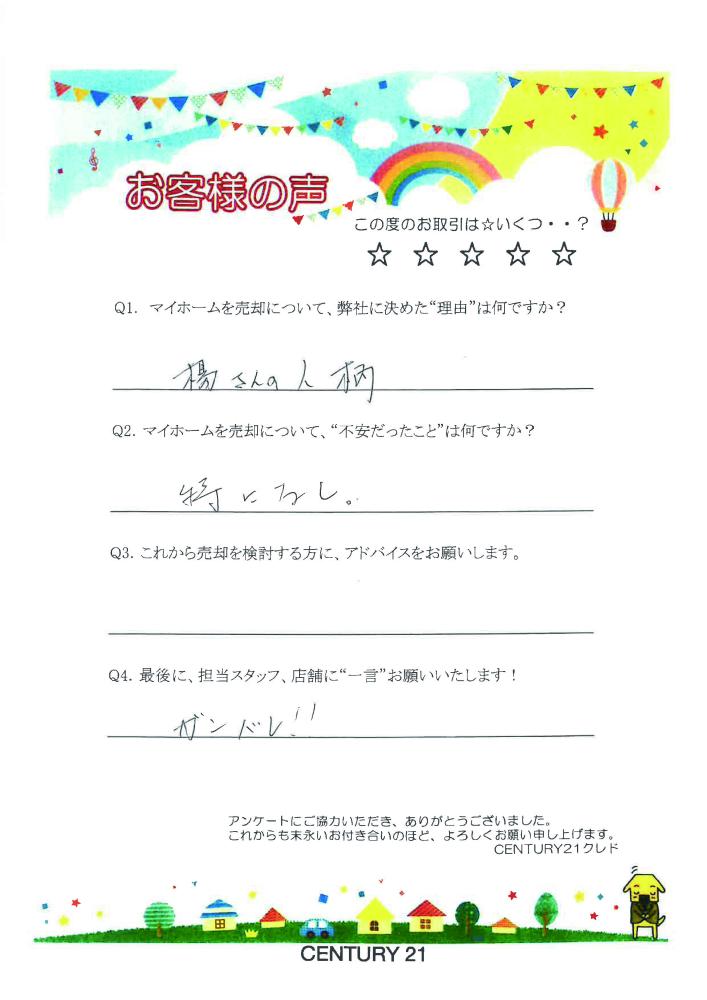 お客様の声
この度のお取引は☆いくつ・・？
☆ ☆ ☆ ☆ ☆
Q1. マイホームを売却について、弊社に決めた“理由”は何ですか？
楊さんの人柄
Q2. マイホームを売却について、“不安だったこと”は何ですか？
特になし。
Q3. これから売却を検討する方に、アドバイスをお願いします。
Q4. 最後に、担当スタッフ、店舗に“一言”お願いいたします！
ガンバレ!!
アンケートにご協力いただき、ありがとうございました。
これからも末永いお付き合いのほど、よろしくお願い申し上げます。
CENTURY21クレド
CENTURY 21